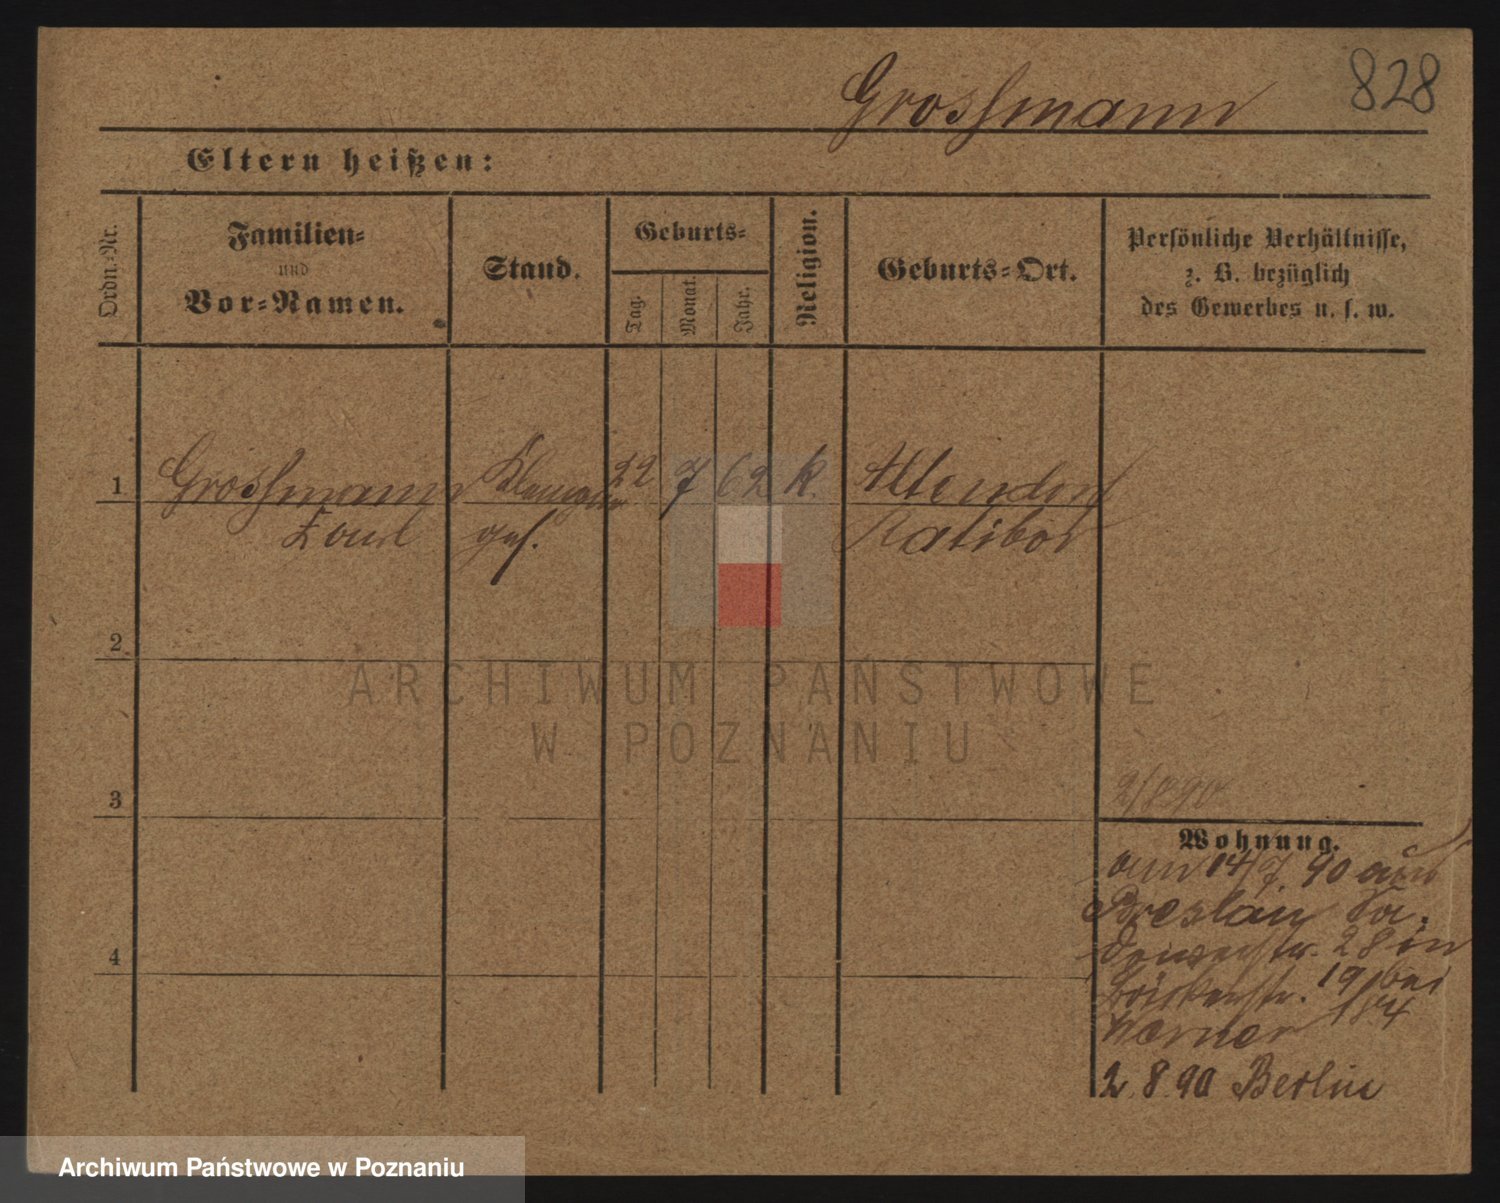 Grossmann 828
Eltern heißen:
Ordn.-Nr.
Familien-
und
Vor-Namen.
Stand.
Geburts-
Tag.
Monat.
Jahr.
Religion.
Geburts-Ort.
Persönliche Verhältnisse,
z. B. bezüglich
des Gewerbes u. s. w.
1 Grossmann Klempner 22 7 62 k. Altendorf
Paul ges. Ratibor
2
ARCHIWUM PAŃSTWOWE
W POZNANIU
2/8 90
3
Wohnung.
am 14/7. 90 aus
Breslau
28 in
19 bei
184
Werner
4
2. 8. 90 Berlin
Archiwum Państwowe w Poznaniu